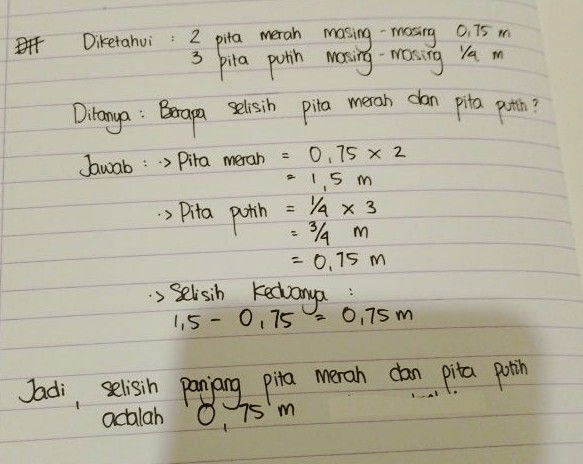 Diketahui : 2 pita merah masing - masing 0,75 m
3 pita putih masing - masing 1/4 m
Ditanya : Berapa selisih pita merah dan pita putih?
Jawab : -> Pita merah = 0,75 x 2
= 1,5 m
-> Pita putih = 1/4 x 3
= 3/4 m
= 0,75 m
-> Selisih keduanya :
1,5 - 0,75 = 0,75 m
Jadi, selisih panjang pita merah dan pita putih
adalah 0,75 m